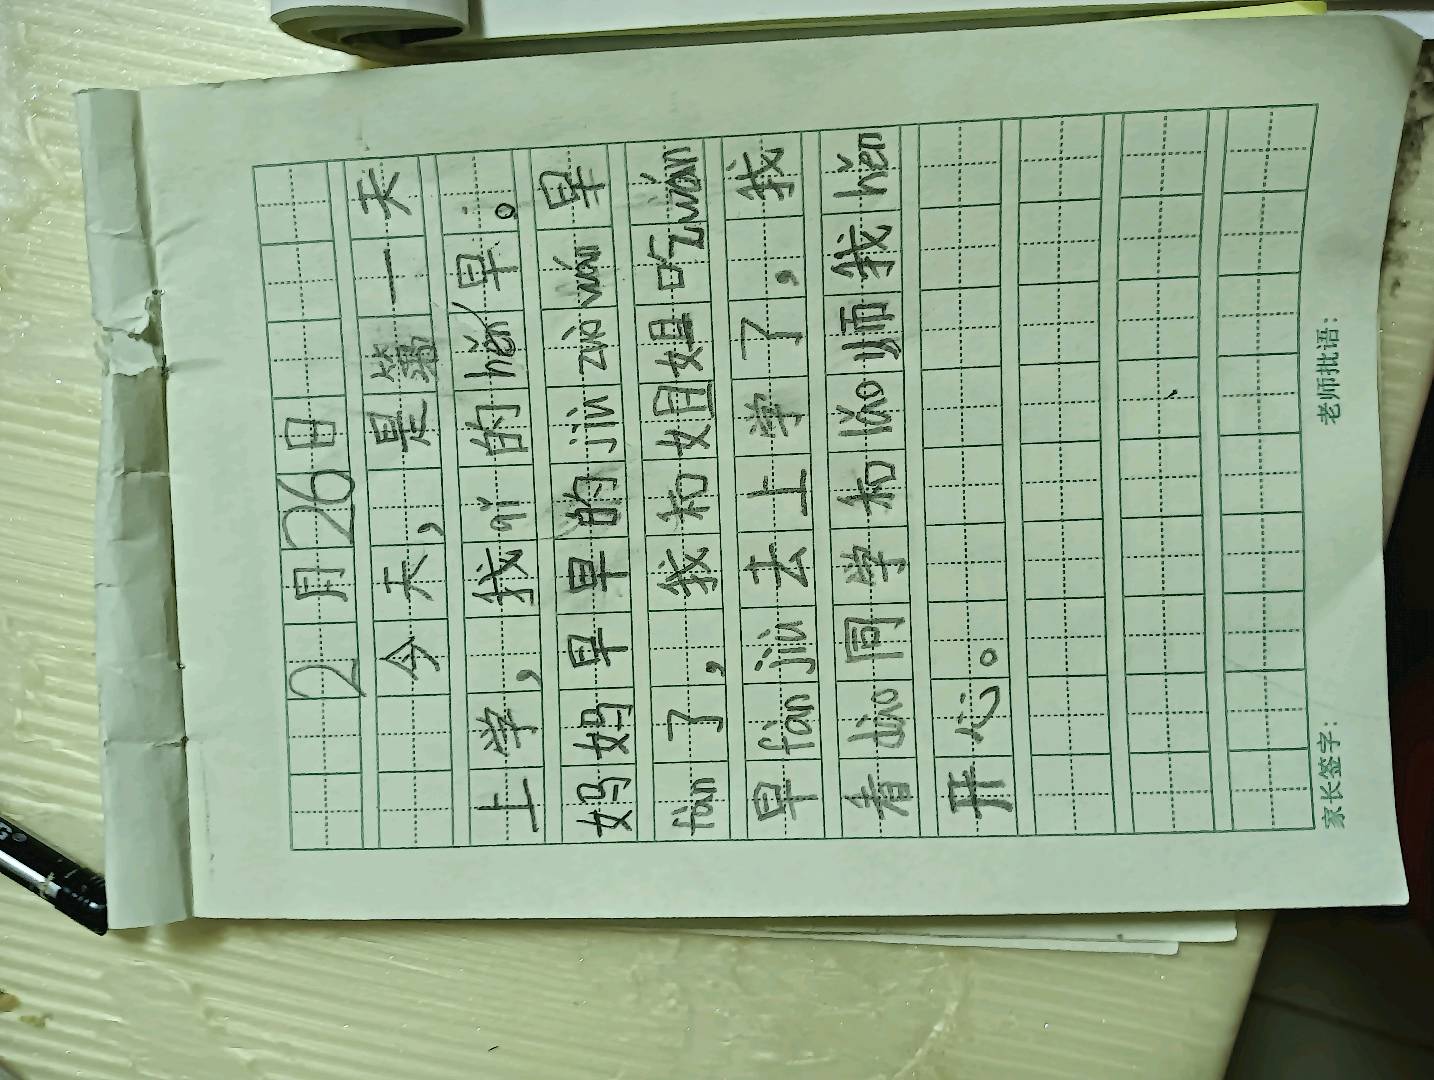 2月26日
今天，是第一天
上学，我qǐ的hěn早。
妈妈早早的jiù zuò wán早
fàn了，我和姐姐吃wán
早fàn jiù去上学了，我
看dào同学和lǎo师我hěn
开心。
家长签字：
老师批语：